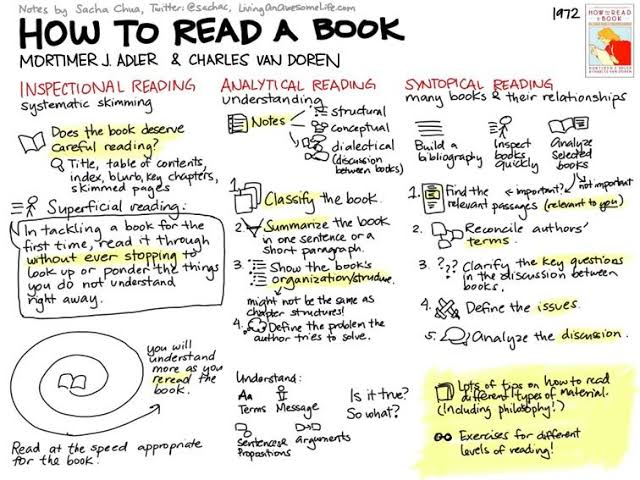 Notes by Sacha Chua, Twitter: @sachac, LivingAnAwesomeLife.com
HOW TO READ A BOOK
MORTIMER J. ADLER & CHARLES VAN DOREN
1972
HOW TO READ
A BOOK
MORTIMER J. ADLER
& CHARLES VAN DOREN
INSPECTIONAL READING
systematic skimming
Does the book deserve
careful reading?
Title, table of contents,
index, blurb, key chapters,
skimmed pages
Superficial reading:
In tackling a book for the
first time, read it through
without ever stopping to
look up or ponder the things
you do not understand
right away.
you will
understand
more as you
reread the
book.
Read at the speed appropriate
for the book!
ANALYTICAL READING
understanding
Notes
structural
conceptual
dialectical
(discussion
between books)
1. Classify the book.
2. Summarize the book
in one sentence or a
short paragraph.
3. Show the book's
organization/structure.
might not be the same as
chapter structures!
4. Define the problem the
author tries to solve.
Understand:
Aa
Terms Message
Sentences & arguments
Propositions
Is it true?
So what?
SYNTOPICAL READING
many books & their relationships
Build a
bibliography
Inspect
books
quickly
Analyze
selected
books
1. Find the
relevant passages (relevant to you)
important?
not important
2. Reconcile authors'
terms.
3. ??? Clarify the key questions
in the discussion between
books.
4. Define the issues.
5. Analyze the discussion.
Lots of tips on how to read
different types of material.
(Including philosophy!)
Exercises for different
levels of reading!